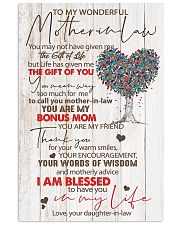 TO MY WONDERFUL
Mother-in-Law
You may not have given me
the Gift of Life
but Life has given me
THE GIFT OF YOU
You mean way
too much for me
to call you mother-in-law
YOU ARE MY
BONUS MOM
YOU ARE MY FRIEND
Thank you
for your warm smiles,
YOUR ENCOURAGEMENT,
YOUR WORDS OF WISDOM
and motherly advice
I AM BLESSED
to have you
in my life
Love, your daughter-in-law